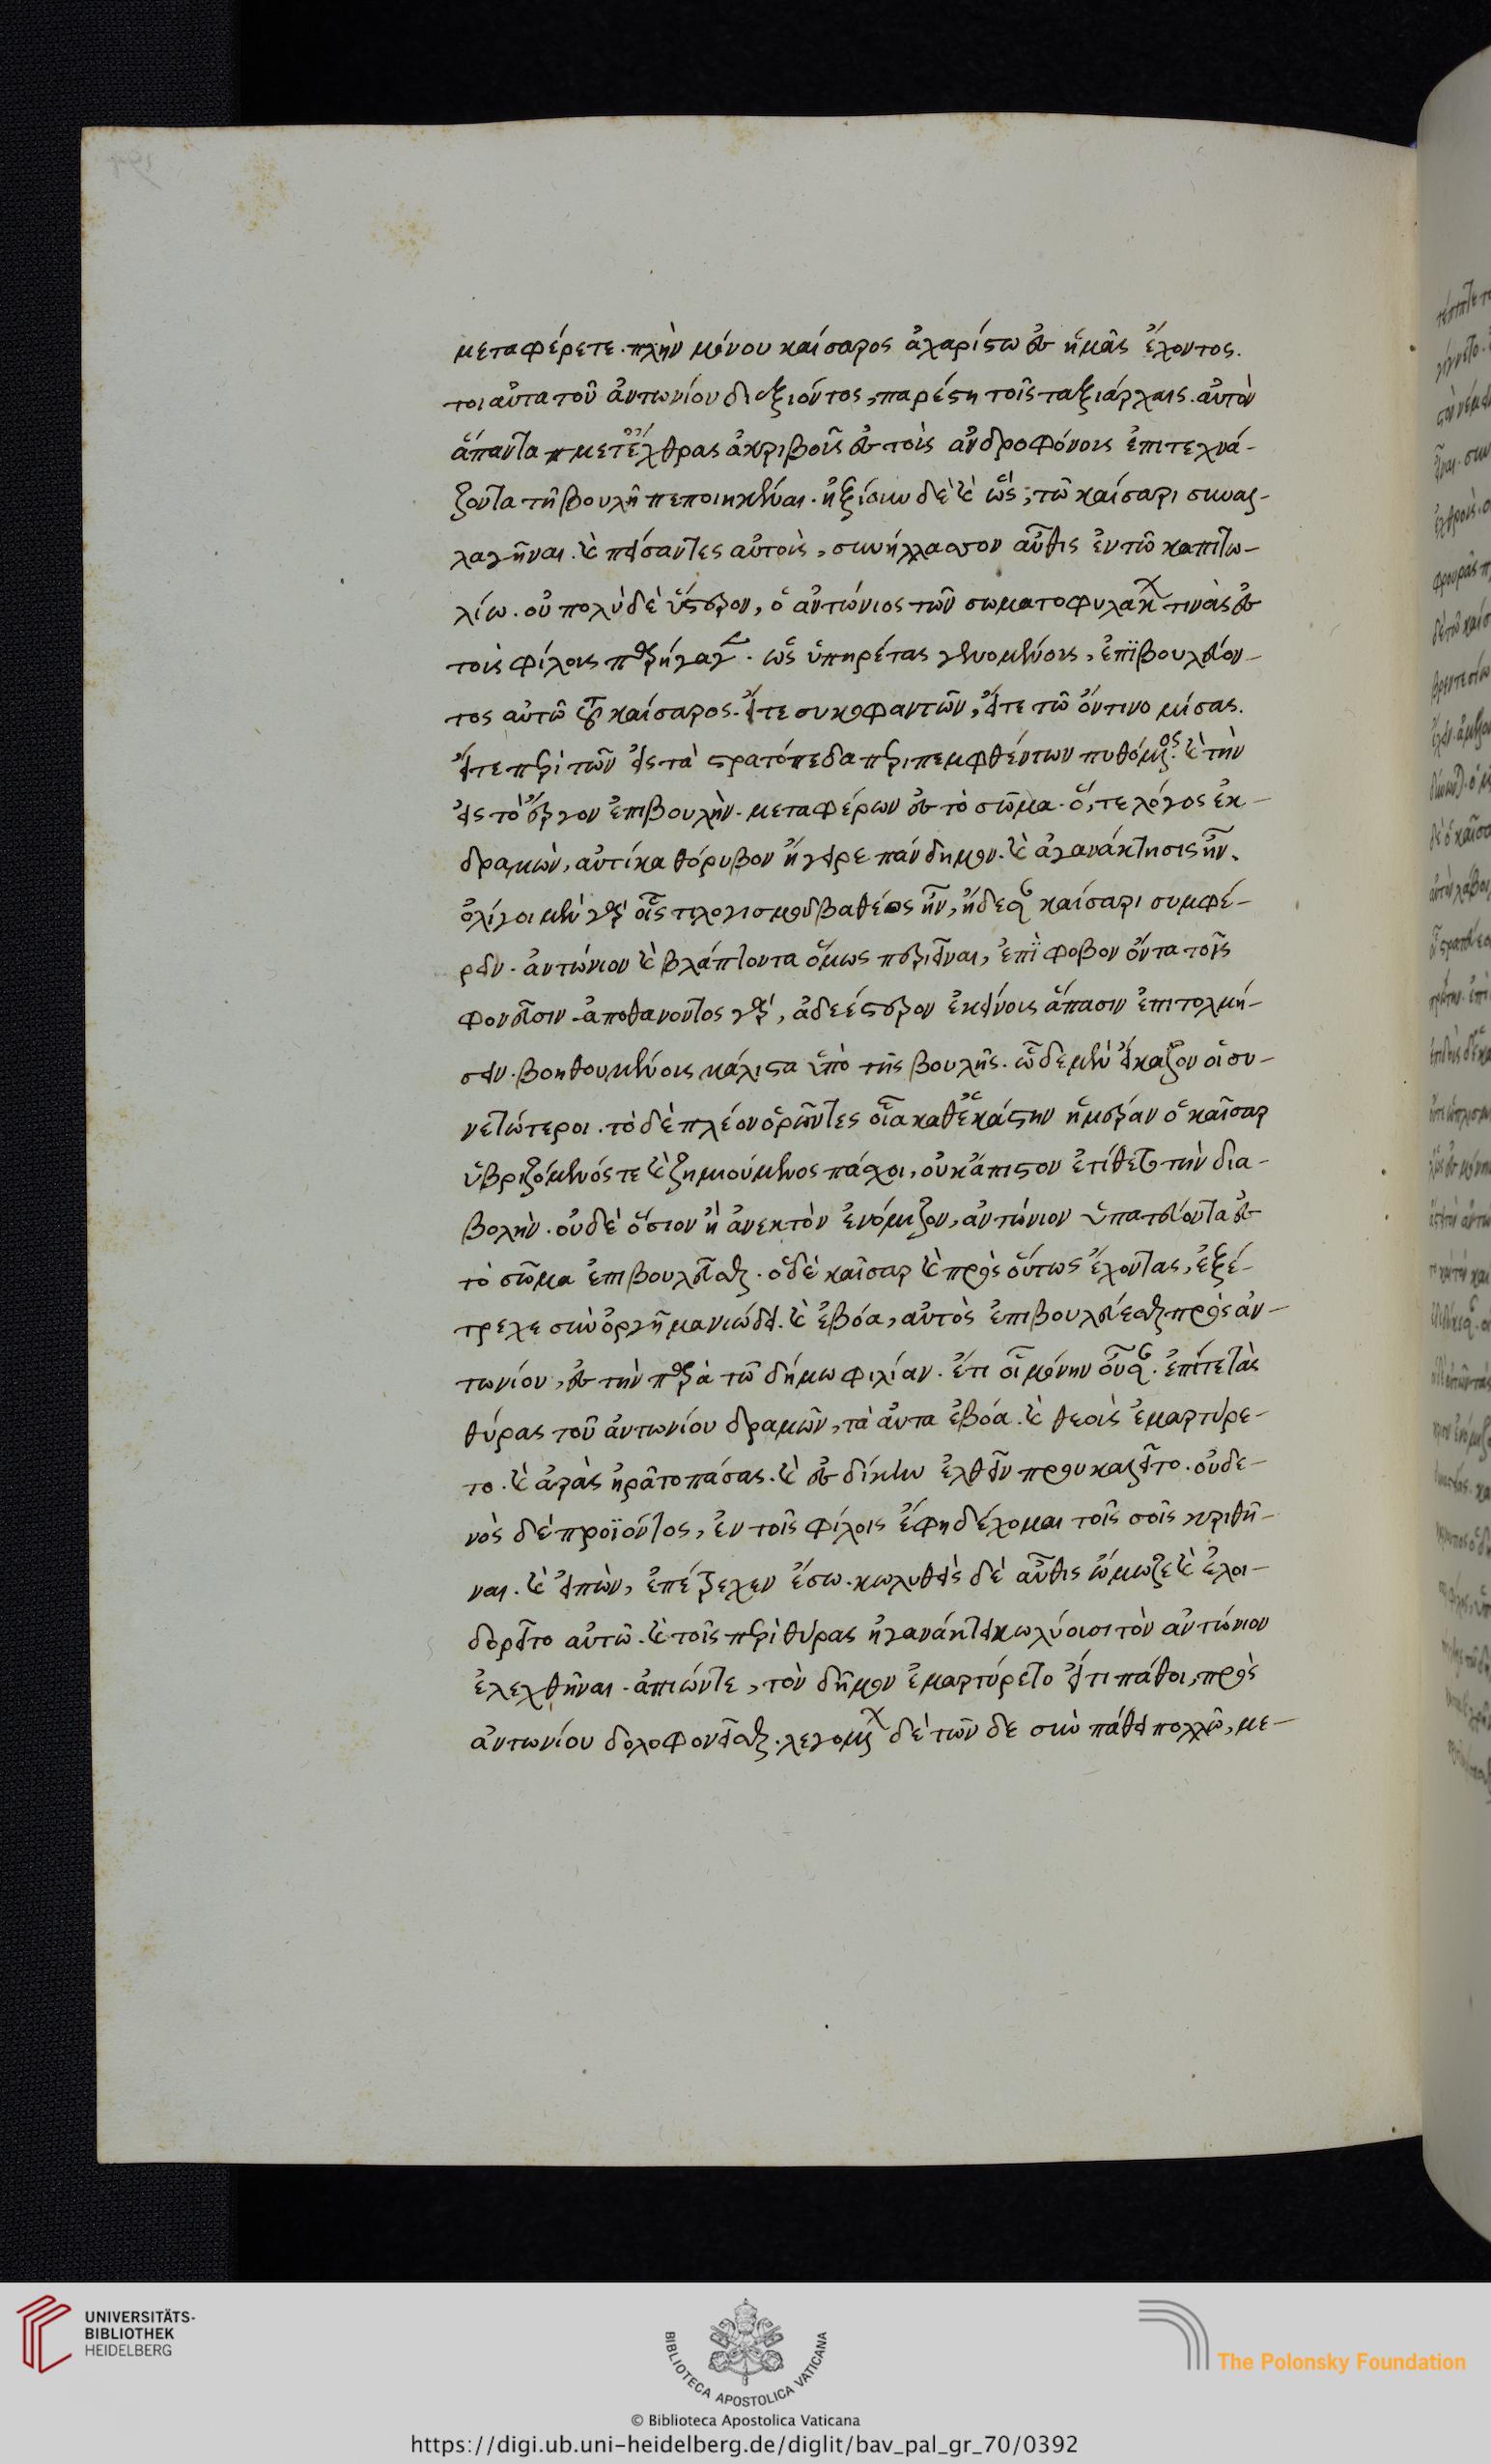 μεταφέρετε. πλὴν μόνου καίσαρος ἀχαρίστω ἐς ἡμᾶς ἔχοντος.
τοιαῦτα τοῦ ἀντωνίου διεξιόντος, παρέστη τοῖς ταξιάρχαις. αὐτὸν
ἅπαντα μετ' ἔχθρας ἀκριβοῦς ἐς τοὺς ἀνδροφόνους ἐπιτεχνά-
ζοντα τῆ βουλῆ πεποιηκέναι. ἠξίουν δὲ καὶ ὧς, τῶ καίσαρι συναλ-
λαγῆναι. καὶ πείσαντες αὐτοὺς, συνήλλασσον αὖθις ἐν τῶ καπιτω-
λίω. οὐ πολὺ δὲ ὕστερον, ὁ ἀντώνιος τῶν σωματοφυλάκων τινὰς ἐς
τοὺς φίλους παρήγαγεν. ὡς ὑπηρέτας γενομένους, ἐπϊβουλεύον-
τος αὐτῶ τοῦ καίσαρος. εἴτε συκοφαντῶν, εἴτε τῶ ὄντι νομίσας.
εἴτε περὶ τῶν ἐς τὰ στρατόπεδα περιπεμφθέντων πυθόμενος. καὶ τὴν
εἰς τὸ ἔργον ἐπιβουλὴν. μεταφέρων ἐς τὸ σῶμα. ὅ, τε λόγος ἐκ-
δραμὼν, αὐτίκα θόρυβον ἤγειρε πάνδημον. καὶ ἀγανάκτησις ἦν.
ὀλίγοι μὲν γὰρ οἷς τι λογισμοῦ βαθέος ἦν, ἤδεσαν καίσαρι συμφέ-
ρειν. ἀντώνιον καὶ βλάπτοντα ὅμως περιεῖναι, ἐπὶ φοβον ὄντα τοῖς
φονεῦσιν. ἀποθανόντος γὰρ, ἀδεέστερον ἐκείνους ἅπασιν ἐπιτολμή-
σειν. βοηθουμένους μάλιστα ὑπὸ τῆς βουλῆς. ὧδε μὲν εἴκαζον οἱ συ-
νετώτεροι. τὸ δὲ πλέον ὁρῶντες οἷα καθ' ἑκάστην ἡμέραν ὁ καῖσαρ
ὑβριζόμενός τε καὶ ζημιούμενος πάσχοι, οὐκ ἄπιστον ἐτίθετο τὴν δια-
βολὴν. οὐδὲ ὅσιον ἢ ἀνεκτὸν ἐνόμιζον, ἀντώνιον ὑπατεύοντα ἐς
τὸ σῶμα ἐπιβουλεῦσαι. ὁ δὲ καῖσαρ καὶ πρὸς οὕτως ἔχοντας, ἐξέ-
τρεχε σὺν ὀργῆ μανιώδει. καὶ ἐβόα, αὐτὸς ἐπιβουλεύεσθαι πρὸς ἀν-
τωνίου, ἐς τὴν παρὰ τῶ δήμω φιλίαν. ἔτι οἱ μόνην οὖσαν. ἐπί τε τὰς
θύρας τοῦ ἀντωνίου δραμῶν, τὰ ἀυτα ἐβόα. καὶ θεοὺς ἐμαρτύρε-
το. καὶ ἀρὰς ἠρᾶτο πάσας. καὶ ἐς δίκην ἐλθεῖν προυκαλεῖτο. οὐδε-
νὸς δὲ προϊόντος, ἐν τοῖς φίλοις ἔφη δέχομαι τοῖς σοῖς κριθῆ-
ναι. καὶ εἰπὼν, ἐπέτρεχεν ἔσω. κωλυθεὶς δὲ αὖθις ὤμωζε καὶ ἐλοι-
δορεῖτο αὐτῶ. καὶ τοῖς περὶ θύρας ἠγανάκτει κωλύουσι τὸν ἀντώνιον
ἐλεχθῆναι. ἀπιώντε, τὸν δῆμον ἐμαρτύρετο εἴ τι πάθοι, πρὸς
ἀντωνίου δολοφονεῖσθαι. λεγομένων δὲ τῶν δε σὺν πάθει πολλῶ, με-
UNIVERSITÄTS-
BIBLIOTHEK
HEIDELBERG
BIBLIOTECA APOSTOLICA VATICANA
The Polonsky Foundation
© Biblioteca Apostolica Vaticana
https://digi.ub.uni-heidelberg.de/diglit/bav_pal_gr_70/0392